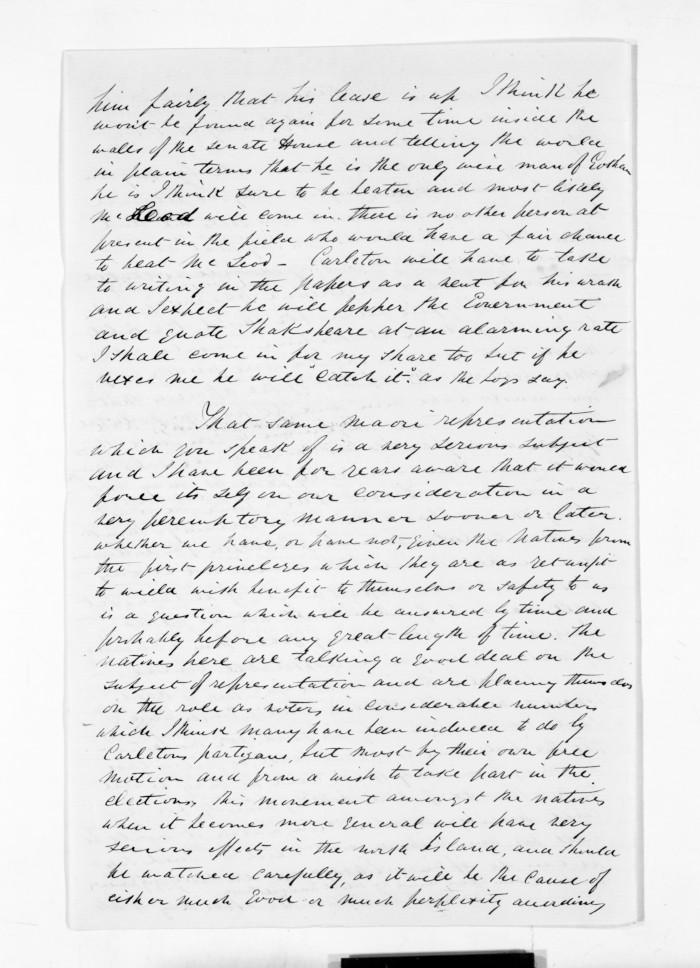 him fairly that his lease is up I think he
wont be found again for some time inside the
walls of the senate House and telling the world
in plain terms that he is the only wise man of Gotham
he is I think sure to be beaten and most likely
Mc Leod will come in. there is no other person at
present in the field who would have a fair chance
to beat Mc Leod – Carleton will have to take
to writing in the papers as a vent for his wrath
and I expect he will pepper the Government
and quote Shakspeare at an alarming rate
I shall come in for my share too but if he
vexes me he will "catch it". as the boys say.
That same maori representation
which you speak of is a very serious subject
and I have been for years aware that it would
force its self on our consideration in a
very peremptory manner sooner or later.
whether we have, or have not, given the Natives from
the first priveleges which they are as yet unfit
to wield with benefit to themselves or safety to us
is a question which will be answered by time and
probably before any great length of time. The
natives here are talking a good deal on the
subject of representation and are placing themselves
on the role as voters in considerable numbers
which I think many have been induced to do by
Carletons partizans, but most by their own free
motion and from a wish to take part in the
elections, this movement amongst the natives
when it becomes more general will have very
serious effects in the north Island, and should
be watched carefully, as it will be the cause of
either much Good or much perplexity according